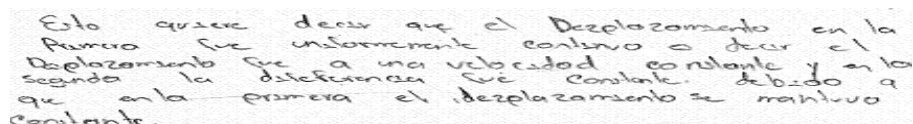 Esto quiere decir que el Dezplazamiento en la
Primera fue uniformemente continuo o decir el
Dezplazamiento fue a una velocidad constante y en la
segunda la diteferencia fué constante. debido a
que en la primera el dezplazamiento se mantuvo
constante.